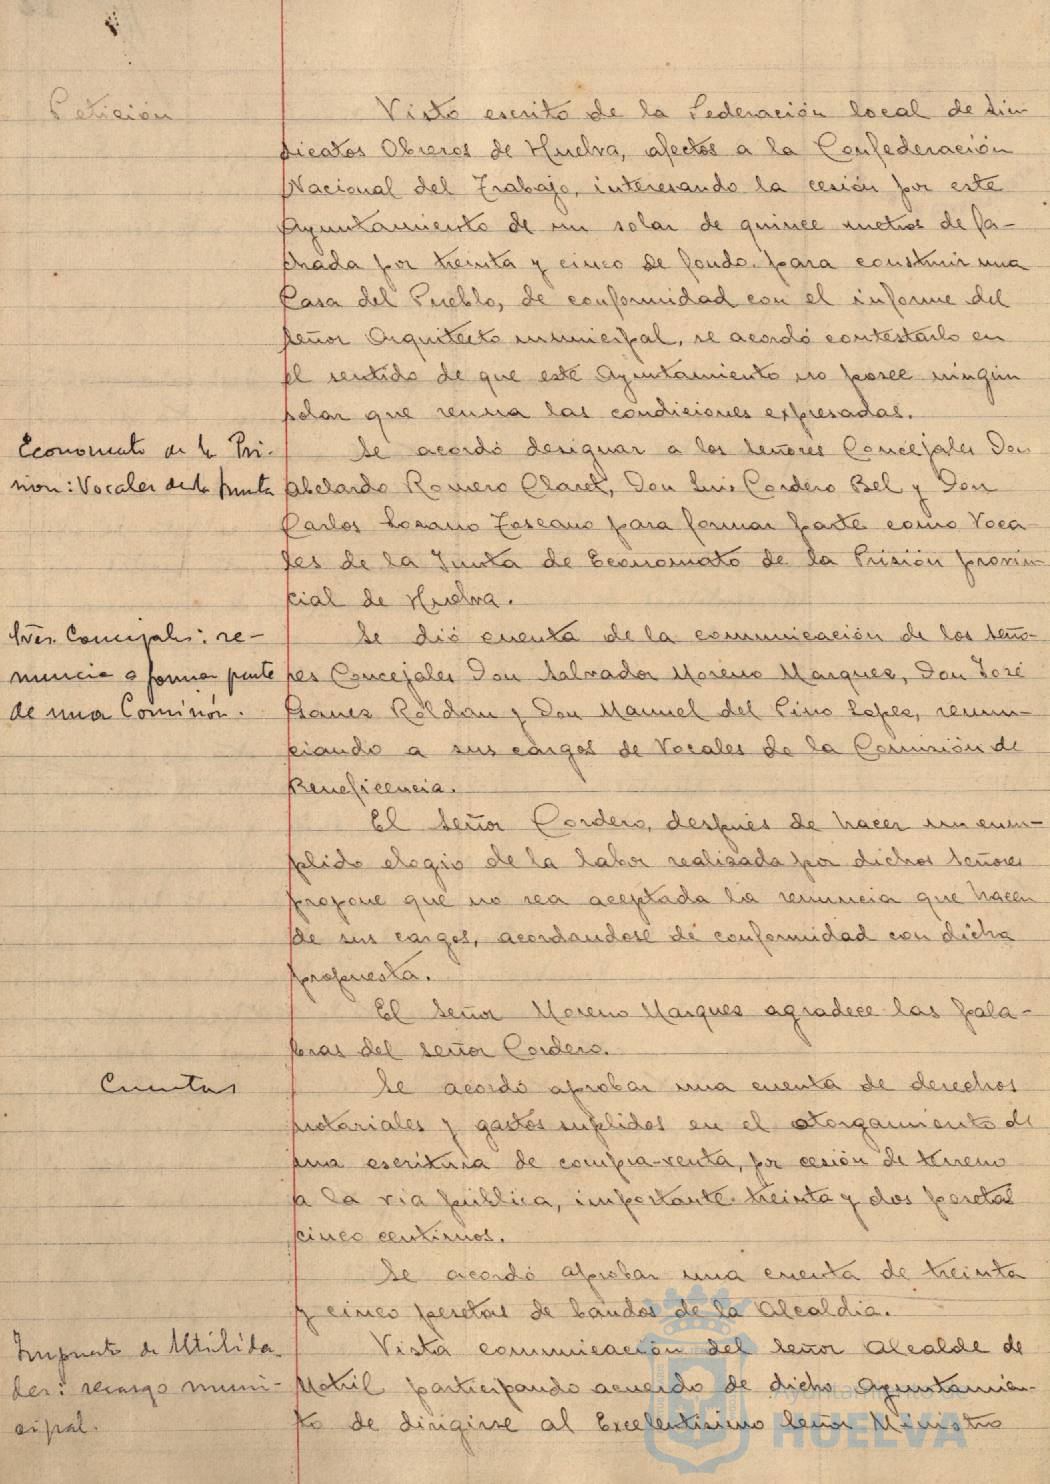 Petición
Visto escrito de la Federación local de Sin-
dicatos Obreros de Huelva, afectos a la Confederación
Nacional del Trabajo, interesando la cesión por este
Ayuntamiento de un solar de quince metros de fa-
chada por treinta y cinco de fondo para construir una
Casa del Pueblo, de conformidad con el informe del
señor Arquitecto municipal, se acordó contestarlo en
el sentido de que este Ayuntamiento no posee ningún
solar que reuna las condiciones expresadas.
Economato de la Pri-
sion: Vocales de la Junta
Se acordó designar a los señores Concejales Don
Abelardo Romero Claret, Don Luis Cordero Bel y Don
Carlos Lozano Toscano para formar parte como Voca-
les de la Junta de Economato de la Prisión provin-
cial de Huelva.
Sres. Concejales: re-
nuncia a formar parte
de una Comisión.
Se dió cuenta de la comunicación de los seño-
res Concejales Don Salvador Moreno Marquez, Don José
Ganez Roldan y Don Manuel del Pino Lopez, renun-
ciando a sus cargos de Vocales de la Comisión de
Beneficencia.
El señor Cordero, después de hacer un cum-
plido elogio de la labor realizada por dichos señores
propone que no sea aceptada la renuncia que hacen
de sus cargos, acordandose de conformidad con dicha
propuesta.
El señor Moreno Marquez agradece las pala-
bras del señor Cordero.
Cuentas
Se acordó aprobar una cuenta de derechos
notariales y gastos suplidos en el otorgamiento de
una escritura de compra-venta, por cesión de terreno
a la via pública, importante treinta y dos pesetas
cinco centimos.
Se acordó aprobar una cuenta de treinta
y cinco pesetas de bandos de la Alcaldia.
Impuesto de Utilida-
des: recargo muni-
cipal.
Vista comunicación del señor Alcalde de
Motril participando acuerdo de dicho Ayuntamien-
to de dirigirse al Excelentisimo Señor Ministro
Ayuntamiento de
HUELVA